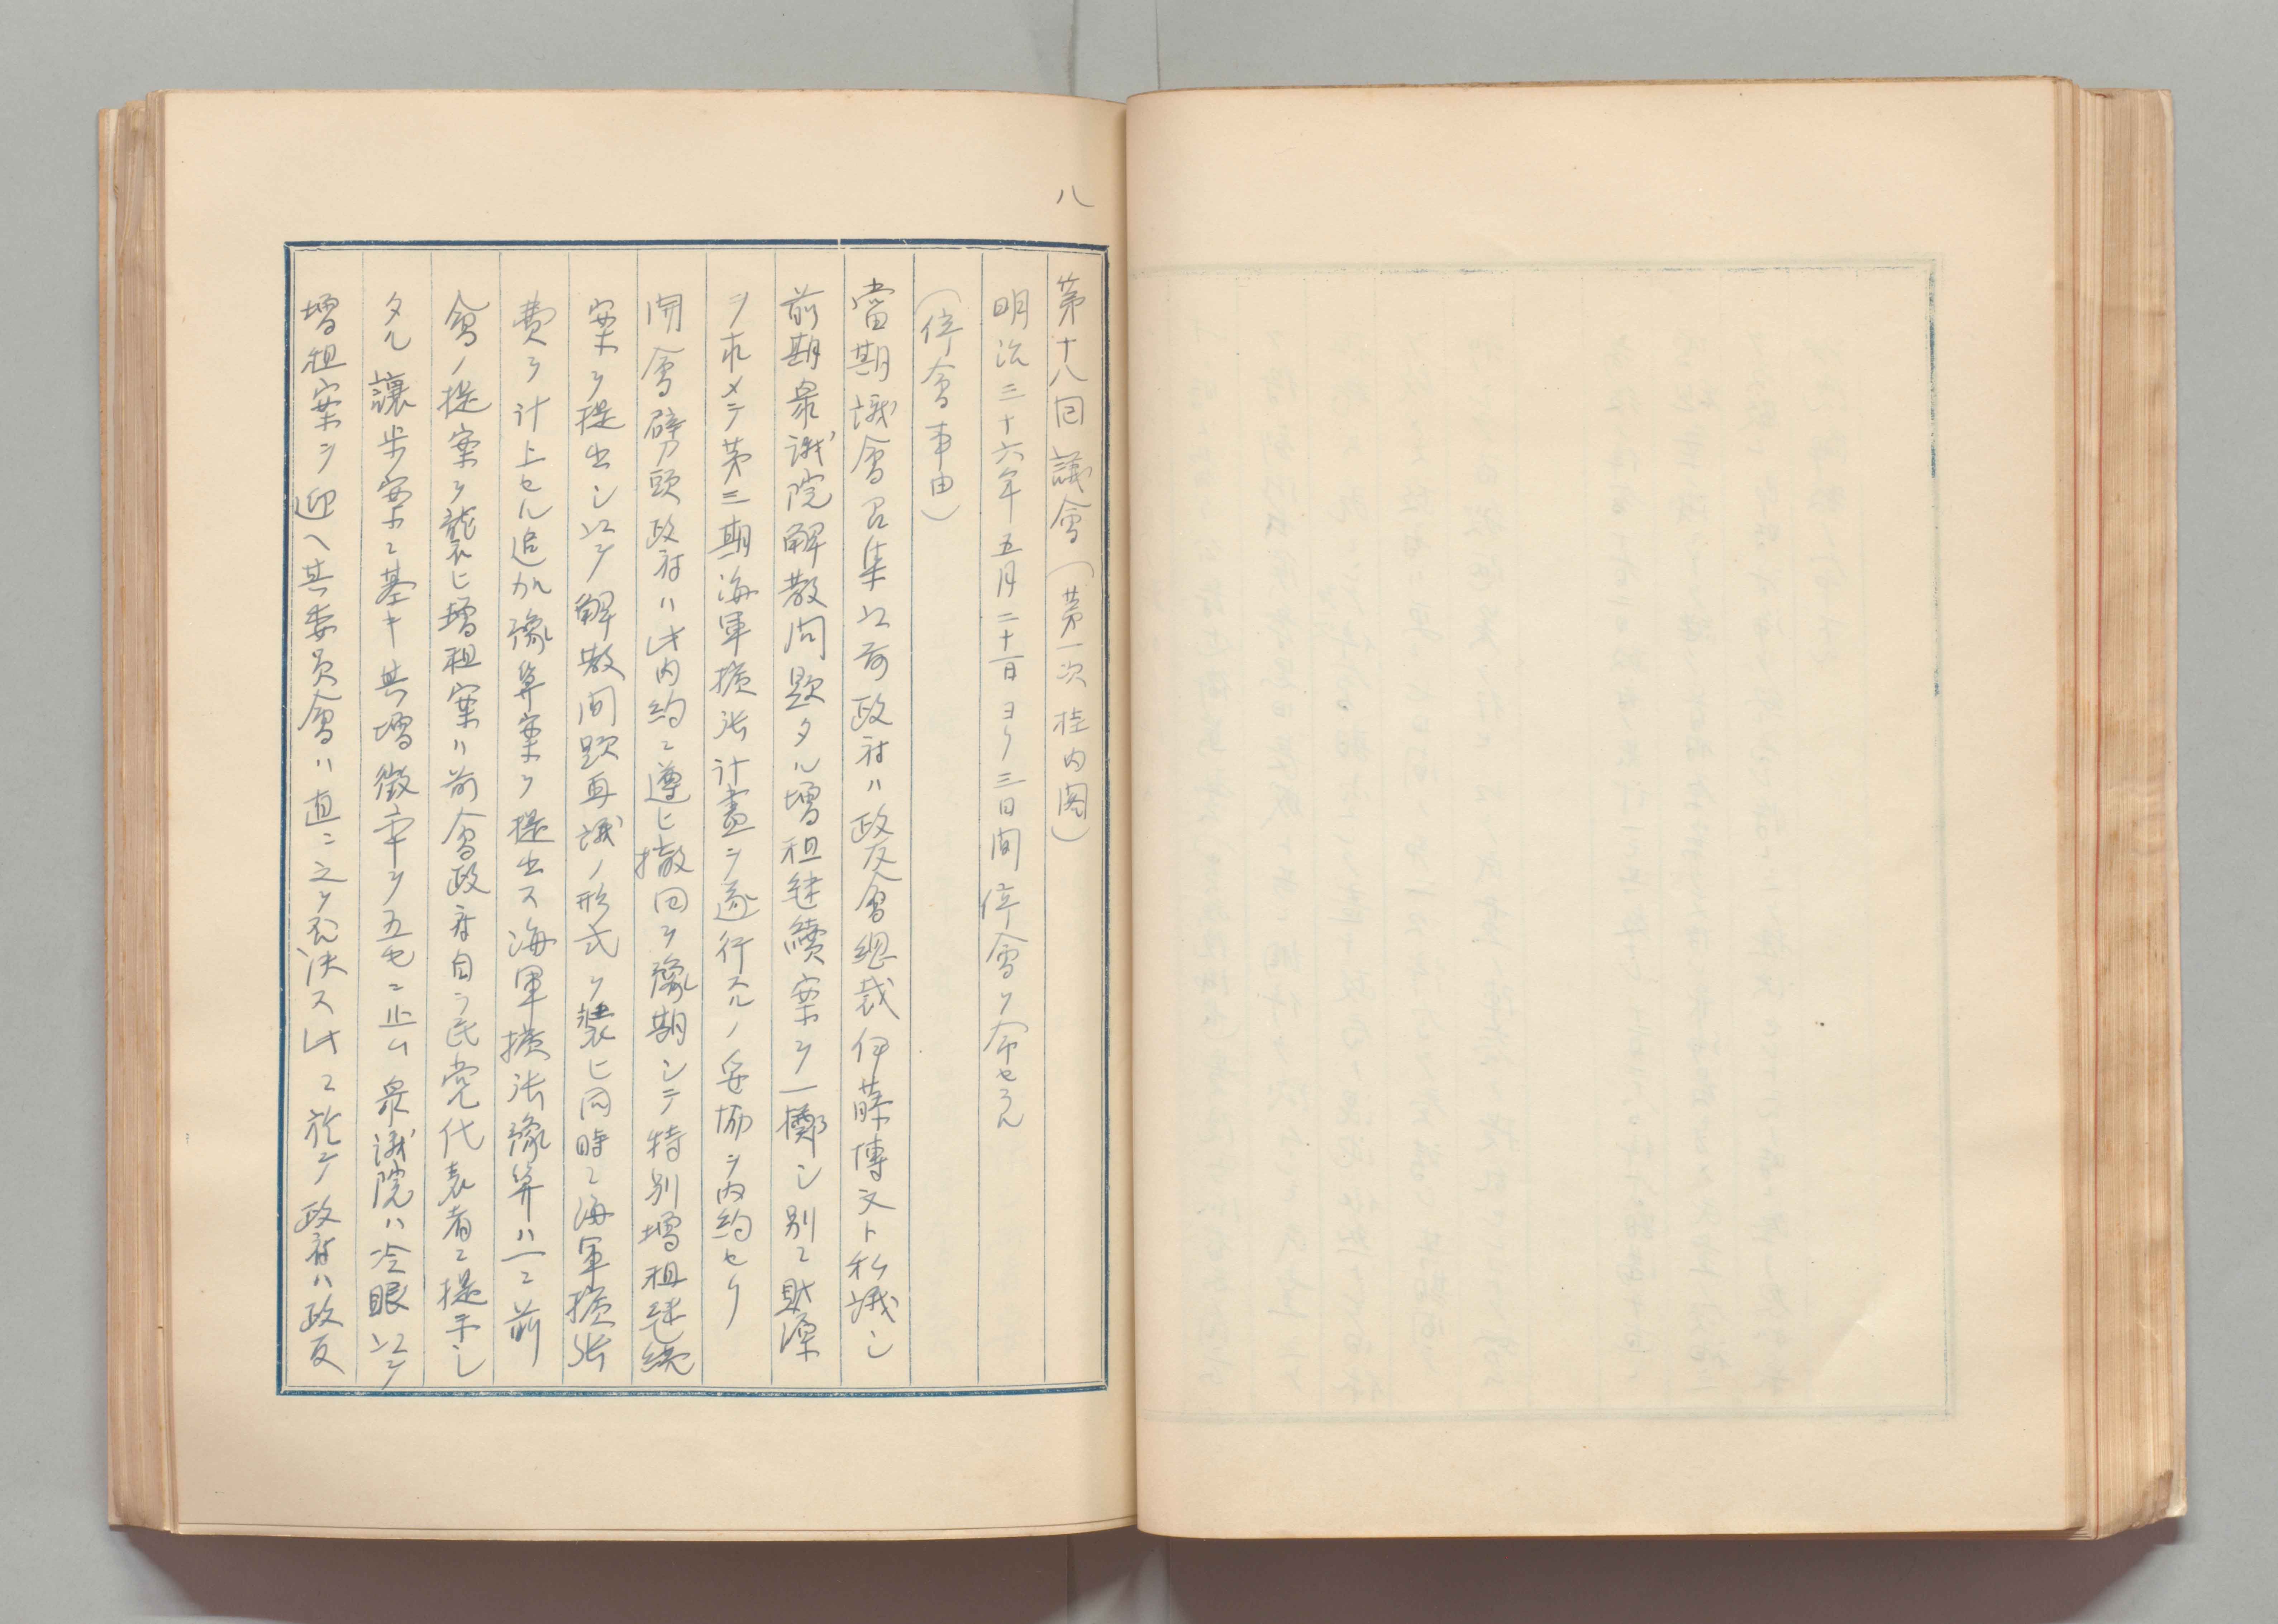 八
第十八回議會（第一次桂内閣）
明治三十六年五月二十一日ヨリ三日間停會ヲ命セラル
（停會事由）
當期議會召集以前政府ハ政友會總裁伊藤博文ト私議シ
前期衆議院解散問題タル増租継續案ヲ一擲シ別ニ財源
ヲ求メテ第三期海軍擴張計畫ヲ遂行スルノ妥協ヲ内約セリ
開會劈頭政府ハ此内約ニ遵ヒ撤回ヲ豫期シテ特別増租継続
案ヲ提出シ以テ解散問題再議ノ形式ヲ襲ヒ同時ニ海軍擴張
費ヲ計上セル追加豫算案ヲ提出ス海軍擴張豫算ハ一ニ前
會ノ提案ヲ襲ヒ増租案ハ前會政府自ラ民党代表者ニ提示シ
タル讓歩案ニ基キ其増徴率ヲ五モニ止ム衆議院ハ冷眼以テ
増租案ヲ迎ヘ其委員會ハ直ニ之ヲ否決ス此ニ於テ政府ハ政友